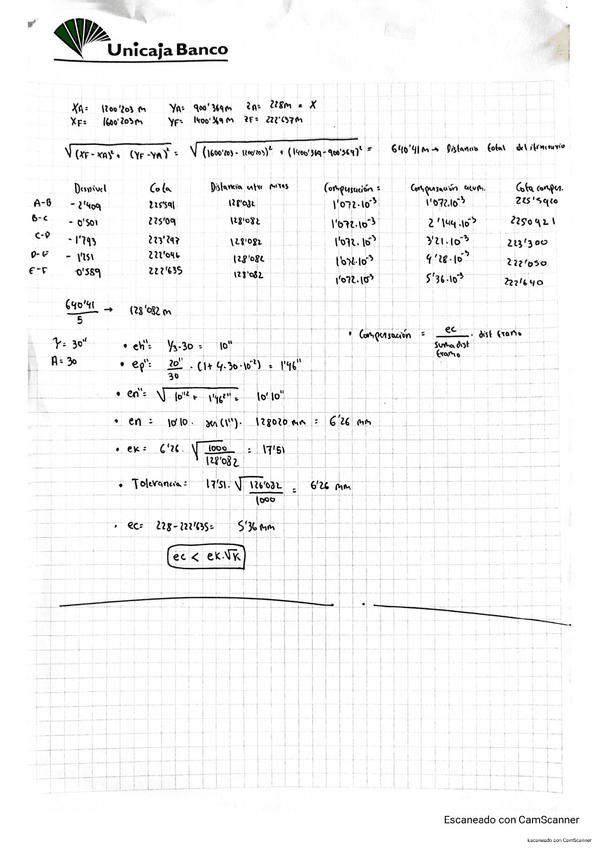 Unicaja Banco
XA= 1200'203 m YA= 900'369 m ZA= 228m = X
XF= 1600'203 m YF= 1400'369 m ZF= 222'637m
√(XF-XA)²+ (YF-YA)² = √(1600'203-1200'203)² + (1400'369-900'369)² = 640'41 m → Distancia total del itinerario
Desnivel Cota Distancia entre miras Compensación = Compensación acum. Cota compen.
A-B - 2'409 225'591 128'082 1'072.10⁻³ 1'072.10⁻³ 225'5920
B-C - 0'501 225'09 128'082 1'072.10⁻³ 2'144.10⁻³ 2250921
C-D - 1'793 223'297 128'082 1'072.10⁻³ 3'21.10⁻³ 223'300
D-E - 1'251 222'046 128'082 1'072.10⁻³ 4'28.10⁻³ 222'050
E-F 0'589 222'635 128'082 1'072.10⁻³ 5'36.10⁻³ 222'640
640'41/5 → 128'082 m
• Compensación = ec/suma dist tramo . dist tramo
= 30" • eh": 1/3.30 = 10"
A= 30 • ep": 20"/30 . (1+ 4.30.10⁻²) = 1'46"
• en"= √10"² + 1'46"² = 10'10"
• en = 10'10. sen(1"). 128020 mm = 6'26 mm
• ek= 6'26. √1000/128'082 = 17'51
• Tolerancia= 17'51. √128'082/1000 = 6'26 mm
• ec= 228-222'635= 5'36 mm
ec < ek.√K
Escaneado con CamScanner
Escaneado con CamScanner